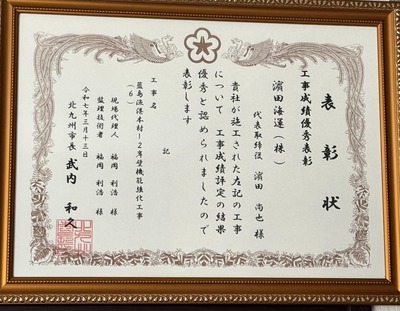 表彰状
工事成績優秀表彰
濵田海運(株)
代表取締役 濵田 尚也 様
貴社が施工された左記の工事
について 工事成績評定の結果
優秀と認められましたので
表彰します
記
工事名
藍島漁港本村-2岸壁機能強化工事
(6)
現場代理人 福岡 利浩 様
監理技術者 福岡 利浩 様
令和七年三月十三日
北九州市長 武内 和久